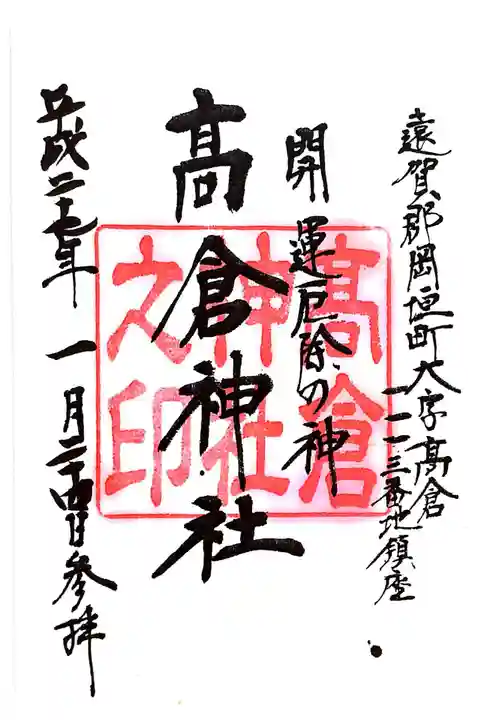 遠賀郡岡垣町大字高倉
一一一三番地鎮座
開運厄除の神
高倉神社
平成二十七年一月二十四日参拝
高倉
神社
之印